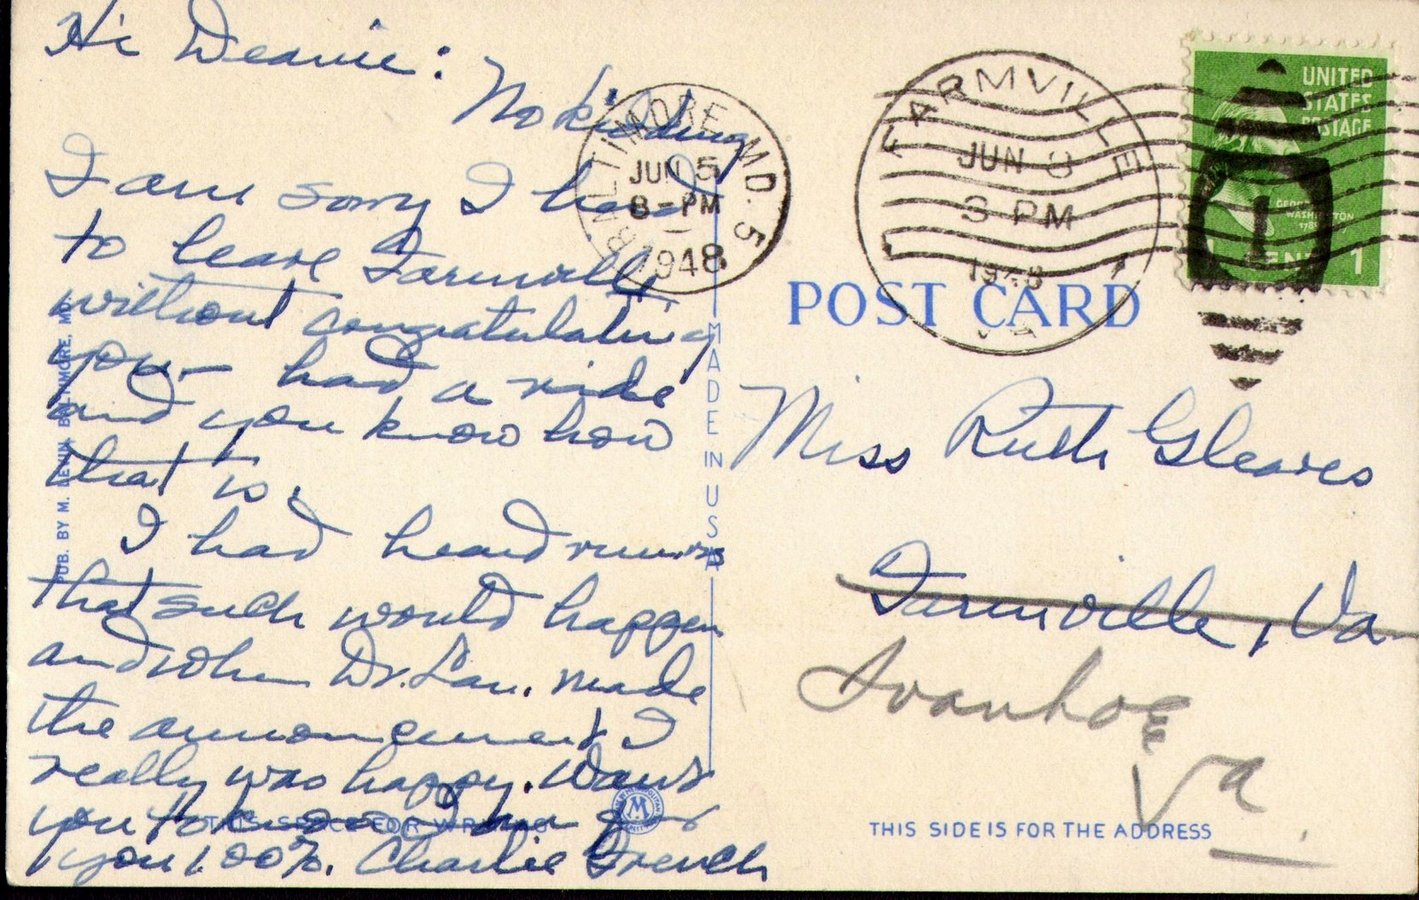 Hi Deanie:
No kidding
I am sorry I had
to leave Farmville
without congratulating
you - had a ride
and you know how
that is.
I had heard rumors
that such would happen
and when Dr. Lan. made
the announcement I
really was happy. Want
you to know I am for
you 100%. Charlie French
PUB. BY M. LEVIN, BALTIMORE, MD.
THIS SPACE FOR WRITING
M
MADE IN USA
BALTIMORE, MD. 5
JUN 5
8 - PM
1948
FARMVILLE
JUN 8
3 PM
1948
VA
UNITED
STATES
POSTAGE
GEORGE
WASHINGTON
1
CENT 1
POST CARD
Miss Ruth Gleaves
Farmville, Va
Ivanhoe
Va.
THIS SIDE IS FOR THE ADDRESS